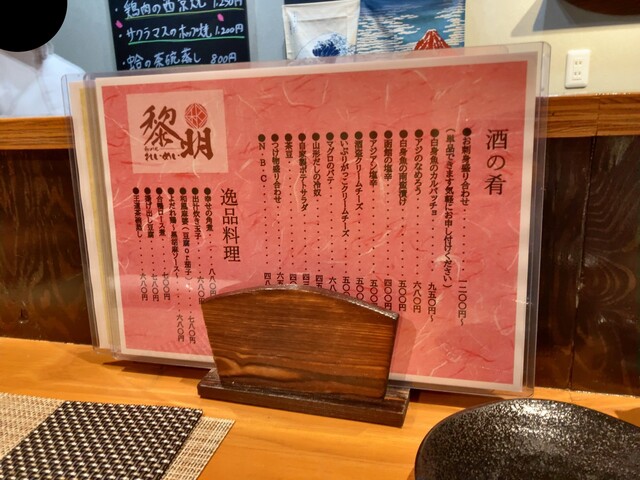 鶏肉の西京焼 1,250円
サクラマスのホップ焼 1,200円
蛤の茶碗蒸し 800円
黎明
れいめい
酒の肴
●お刺身盛り合わせ・・・・・・・・・一二〇〇円~
(単品でできます気軽にお申し付けください)
●白身魚のカルパッチョ・・・・九五〇円~
●アジのなめろう・・・・・・・六八〇円
●白身魚の南蛮漬け・・・・・五〇〇円
●函館の塩辛・・・・・・・・・四〇〇円
●アジアン塩辛・・・・・・・・五〇〇円
●酒盗クリームチーズ・・・・五〇〇円
●いぶりがっこクリームチーズ・・五〇〇円
●マグロのパテ
●山形だしの冷奴
●自家製ポテトサラダ
●茶豆
●つけ物盛り合わせ
●N.B.C
逸品料理
●幸せの角煮
●出汁炊き玉子
●和風麻婆(豆腐or茄子)・・七八〇円
●よだれ鶏~黒胡麻ソース~・・六八〇円
●合鴨ロース煮・・・・・・七〇〇円
●揚げ出し豆腐・・・・・・七八〇円
●王道茶碗蒸し・・・・・・六八〇円